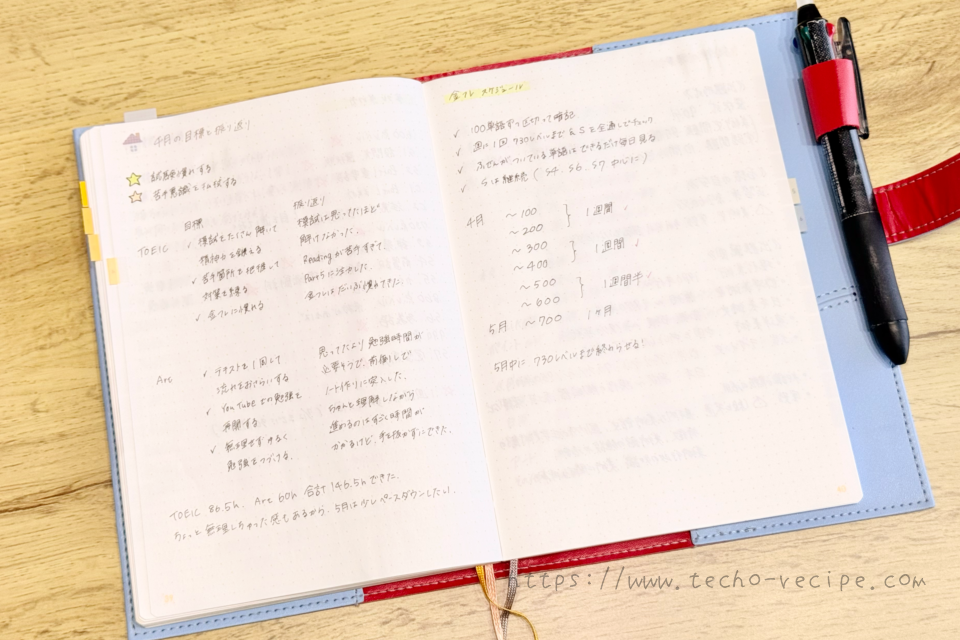 4月の目標と振り返り
試験慣れする
苦手意識を払拭する
目標
振り返り
TOEIC
✓ 模試をたくさん解いて
持続力を鍛える
✓ 苦手箇所を把握して
対策を練る
✓ 金フレに慣れる
模試は思ってたほど
解けなかった。
Readingが苦手すぎて、
Part5に注力した。
金フレはだいぶ慣れてきた。
Arc
✓ テキストを1周して
流れをおさらいする
✓ YouTubeでの勉強を
再開する
✓ 無理せずゆるく
勉強をつづける。
思ってたより勉強時間が
必要そうで、前倒しで
ノート作りに突入した。
ちゃんと理解しながら
進めるのはすごく時間が
かかるけど、手を抜かずにできた。
TOEIC 86.5h、Arc 60h 合計146.5hできた。
ちょっと無理しちゃった感もあるから、5月は少しペースダウンしたい。
金フレ スケジュール
✓ 100単語ずつ区切って暗記
✓ 週に1回 730レベルまで & Sを全通しでチェック
✓ ふせんがついている単語はできるだけ毎日見る
✓ Sは継続 (S4、S6、S7 中心に)
4月 ～100
～200
1週間 ✓
～300
～400
1週間 ✓
～500
～600
1週間半 ✓
5月 ～700 1ヶ月
5月中に 730レベルまで終わらせる!
https://www.techo-vecipe.com